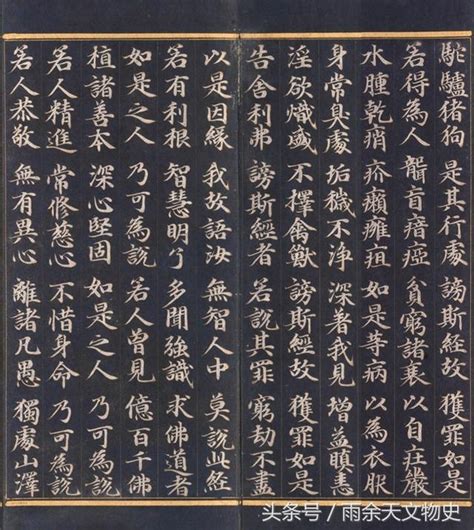 駝驢猪狗 是其行處 謗斯經故 獲罪如是
若得為人 聾盲瘖瘂 貧窮諸衰 以自莊嚴
水腫乾痟 疥癩癰疽 如是等病 以為衣服
身常臭處 垢穢不淨 深著我見 增益瞋恚
淫欲熾盛 不擇禽獸 謗斯經故 獲罪如是
告舍利弗 謗斯經者 若說其罪 窮劫不盡
以是因緣 我故語汝 無智人中 莫說此經
若有利根 智慧明了 多聞強識 求佛道者
如是之人 乃可為說 若人曾見 億百千佛
植諸善本 深心堅固 如是之人 乃可為說
若人精進 常修慈心 不惜身命 乃可為說
若人恭敬 無有異心 離諸凡愚 獨處山澤
头条号／雨余天文物史